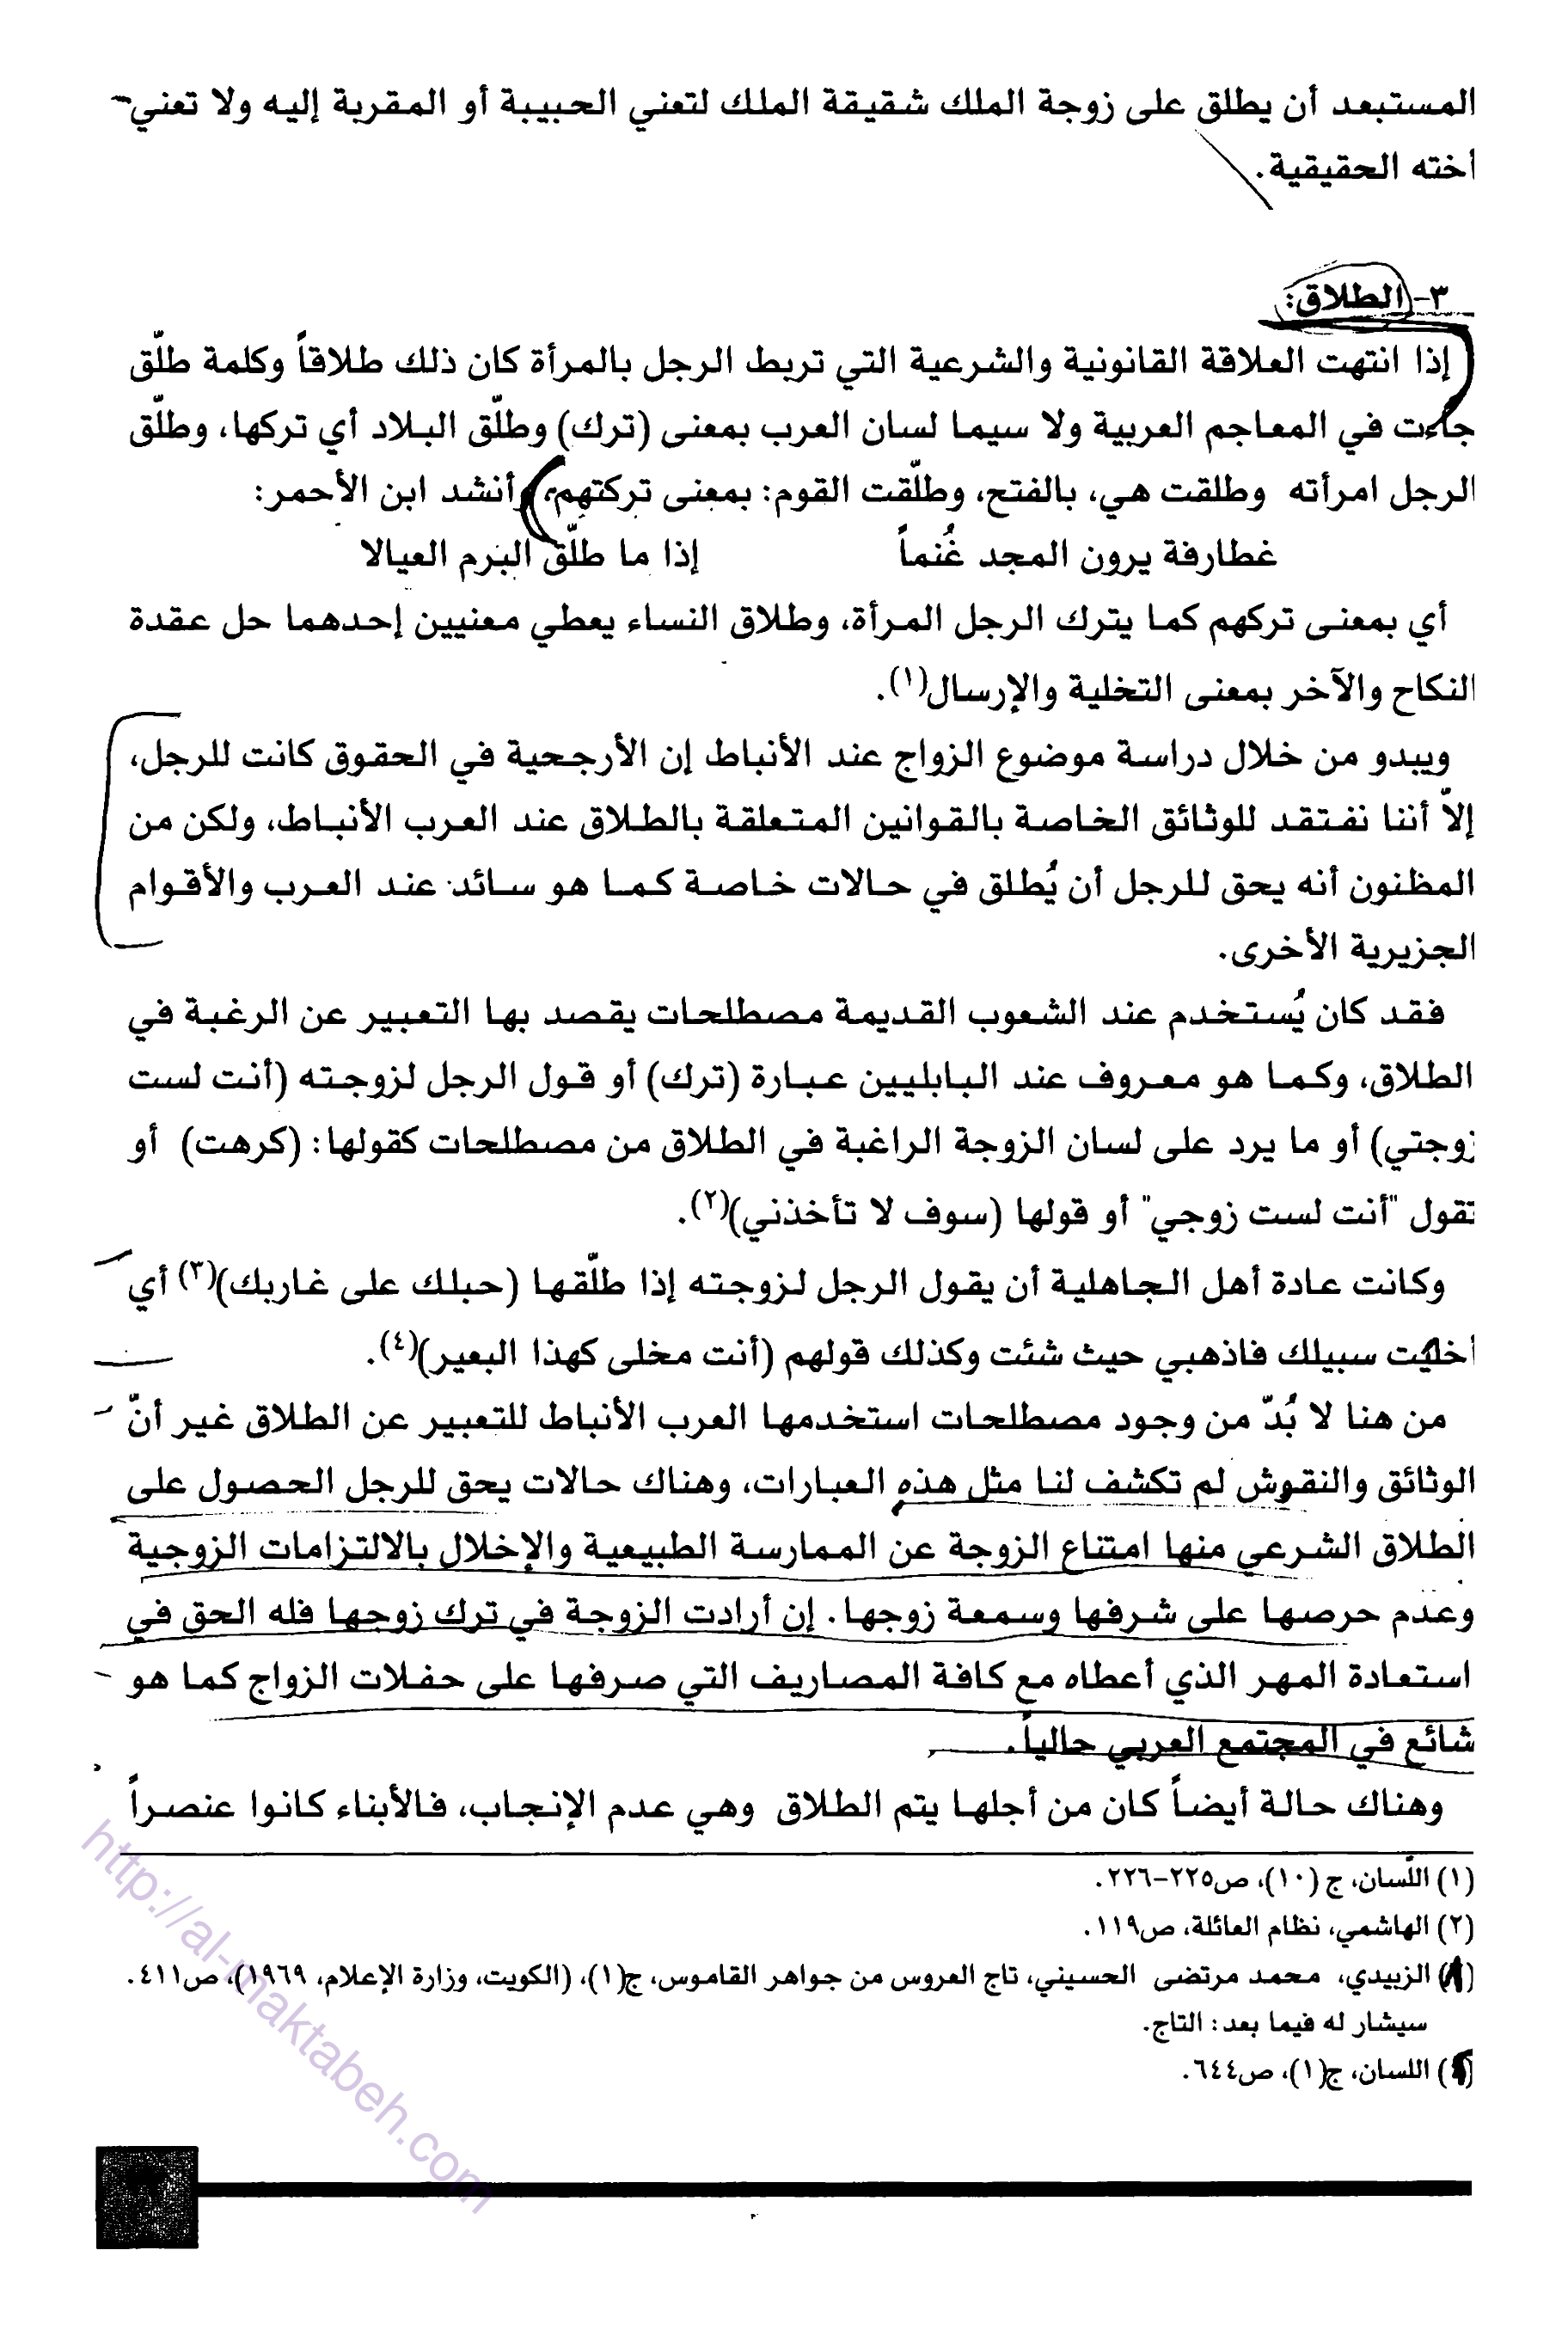 المستبعد أن يطلق على زوجة الملك شقيقة الملك لتعني الحبيبة أو المقربة إليه ولا تعني
أخته الحقيقية.
٣- الطلاق:
إذا انتهت العلاقة القانونية والشرعية التي تربط الرجل بالمرأة كان ذلك طلاقاً وكلمة طلّق
جاءت في المعاجم العربية ولا سيما لسان العرب بمعنى (ترك) وطلّق البلاد أي تركها، وطلّق
الرجل امرأته وطلقت هي، بالفتح، وطلّقت القوم: بمعنى تركتهم، وأنشد ابن الأحمر:
غطارفة يرون المجد غُنماً إذا ما طلّق البرم العيالا
أي بمعنى تركهم كما يترك الرجل المرأة، وطلاق النساء يعطي معنيين إحدهما حل عقدة
النكاح والآخر بمعنى التخلية والإرسال(١).
ويبدو من خلال دراسة موضوع الزواج عند الأنباط إن الأرجحية في الحقوق كانت للرجل،
إلاّ أننا نفتقد للوثائق الخاصة بالقوانين المتعلقة بالطلاق عند العرب الأنباط، ولكن من
المظنون أنه يحق للرجل أن يُطلق في حالات خاصة كما هو سائد عند العرب والأقوام
الجزيرية الأخرى.
فقد كان يُستخدم عند الشعوب القديمة مصطلحات يقصد بها التعبير عن الرغبة في
الطلاق، وكما هو معروف عند البابليين عبارة (ترك) أو قول الرجل لزوجته (أنت لست
زوجتي) أو ما يرد على لسان الزوجة الراغبة في الطلاق من مصطلحات كقولها: (كرهت) أو
تقول "أنت لست زوجي" أو قولها (سوف لا تأخذني)(٢).
وكانت عادة أهل الجاهلية أن يقول الرجل لزوجته إذا طلّقها (حبلك على غاربك)(٣) أي
أخليت سبيلك فاذهبي حيث شئت وكذلك قولهم (أنت مخلى كهذا البعير)(٤).
من هنا لا بُدّ من وجود مصطلحات استخدمها العرب الأنباط للتعبير عن الطلاق غير أنّ
الوثائق والنقوش لم تكشف لنا مثل هذه العبارات، وهناك حالات يحق للرجل الحصول على
الطلاق الشرعي منها امتناع الزوجة عن الممارسة الطبيعية والإخلال بالالتزامات الزوجية
وعدم حرصها على شرفها وسمعة زوجها. إن أرادت الزوجة في ترك زوجها فله الحق في
استعادة المهر الذي أعطاه مع كافة المصاريف التي صرفها على حفلات الزواج كما هو
شائع في المجتمع العربي حالياً.
وهناك حالة أيضاً كان من أجلها يتم الطلاق وهي عدم الإنجاب، فالأبناء كانوا عنصراً
(١) اللّسان، ج (١٠)، ص٢٢٥-٢٢٦.
(٢) الهاشمي، نظام العائلة، ص١١٩.
(٣) الزبيدي، محمد مرتضى الحسيني، تاج العروس من جواهر القاموس، ج(١)، (الكويت، وزارة الإعلام، ١٩٦٩)، ص٤١١.
سيشار له فيما بعد: التاج.
(٤) اللسان، ج(١)، ص٦٤٤.
http://al-maktabeh.com